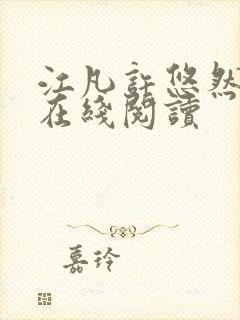 江凡許悠然
在綫閱讀
嘉玲